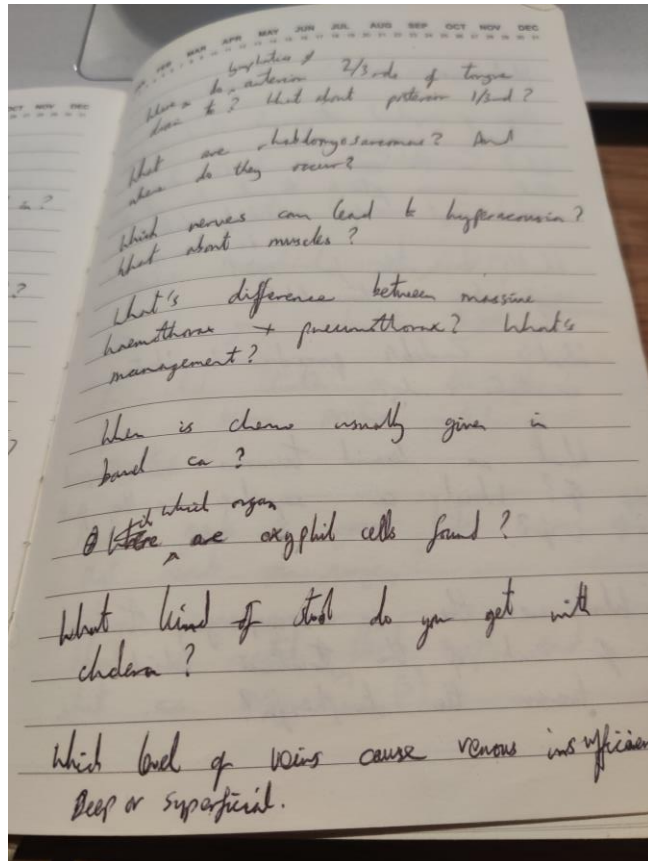 FEB MAR APR MAY JUN JUL AUG SEP OCT NOV DEC
OCT NOV DEC
in ?
?
?
lymphatics of
Where do anterior 2/3rds of tongue
drain to? What about posterior 1/3rd ?
What are rhabdomyosarcomas? And
where do they occur?
Which nerves can lead to hyperacusia?
What about muscles ?
What's difference between massive
haemothorax + pneumothorax? What's
management?
When is chemo usually given in
bowel ca ?
in which organ
are oxyphil cells found ?
What kind of stool do you get with
cholera ?
Which level of veins cause venous insufficien
Deep or superficial.